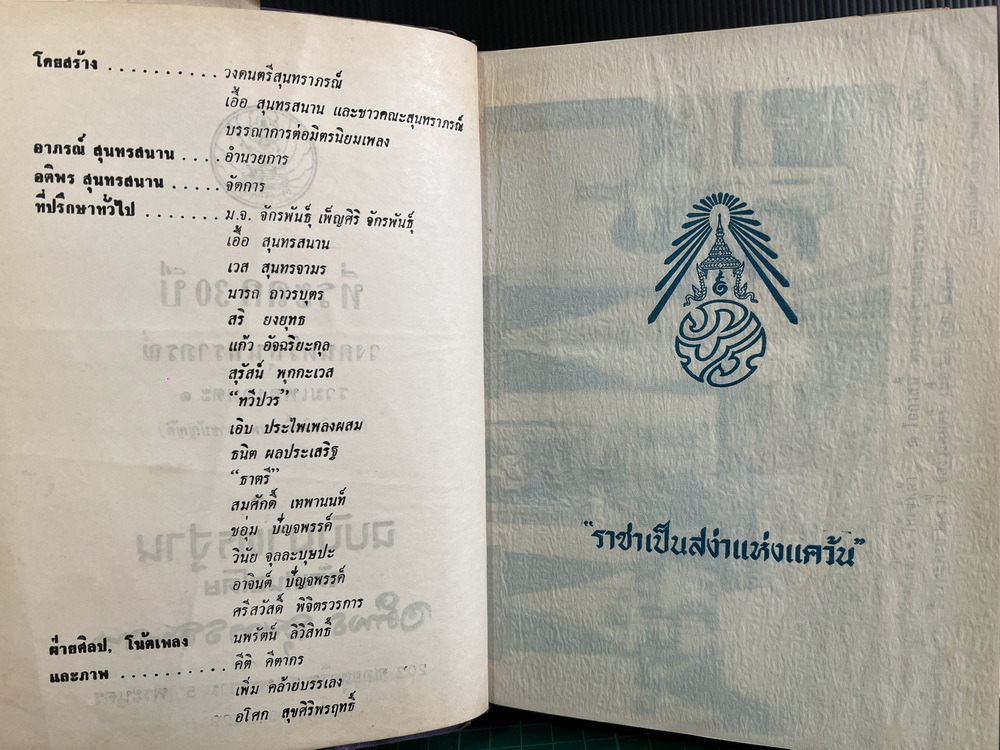 โดยสร้าง .......... วงดนตรีสุนทราภรณ์
เอื้อ สุนทรสนาน และชาวคณะสุนทราภรณ์
บรรณาการต่อมิตรนิยมเพลง
อาภรณ์ สุนทรสนาน .... อำนวยการ
อติพร สุนทรสนาน ..... จัดการ
ที่ปรึกษาทั่วไป ........ ม.จ. จักรพันธุ์ เพ็ญศิริ จักรพันธุ์
เอื้อ สุนทรสนาน
เวส สุนทรจามร
นารถ ถาวรบุตร
สริ ยงยุทธ
แก้ว อัจฉริยะกุล
สุรัสน์ พุกกะเวส
“ทวีปวร”
เอิบ ประไพเพลงผสม
ธนิต ผลประเสริฐ
“ธาตรี”
สมศักดิ์ เทพานนท์
ชอุ่ม ปัญจพรรค์
วินัย จุลละบุษปะ
อาจินต์ ปัญจพรรค์
ศรีสวัสดิ์ พิจิตรวรการ
นพรัตน์ ลิวิสิทธิ์
ฝ่ายศิลป, โน้ตเพลง
และภาพ ........... คีติ คีตากร
เพิ่ม คล้ายบรรเลง
อโศก สุขศิริพรฤทธิ์
“ราชาเป็นสง่าแห่งแคว้น”